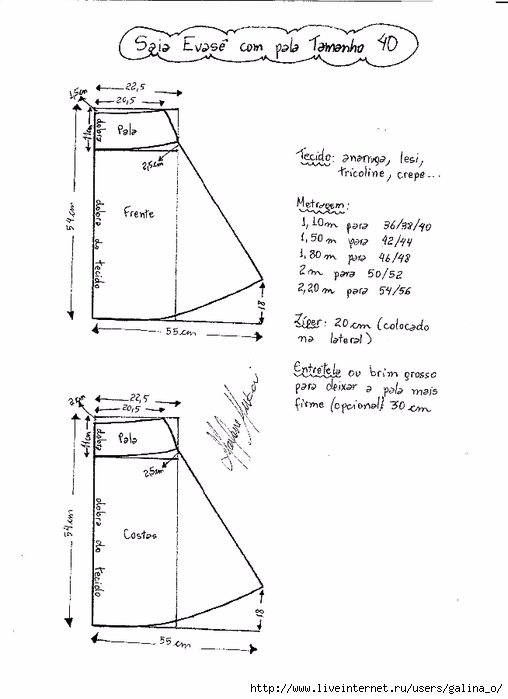 Saia Evasê com pala Tamanho 40
22,5
1,5cm
20,5
11cm
dobra
Pala
2,5cm
54cm
Frente
dobra do tecido
18
55cm
Tecido: anarruga, lesi,
tricoline, crepe...
Metragem:
1,10m para 36/38/40
1,50m para 42/44
1,80m para 46/48
2m para 50/52
2,20m para 54/56
Zíper: 20cm (colocado
na lateral)
Entretela ou brim grosso
para deixar a pala mais
firme (opcional) 30cm
22,5
2cm
20,5
11cm
dobra
Pala
2,5cm
54cm
Costas
dobra do tecido
18
55cm
http://www.liveinternet.ru/users/galina_o/